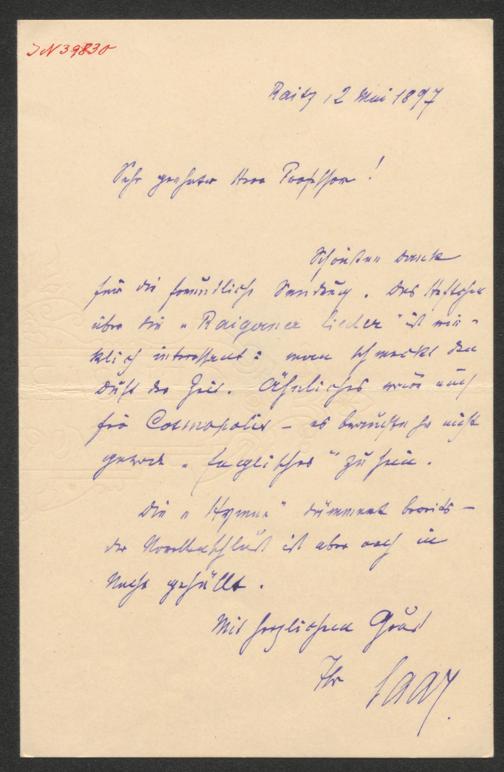 JN 39830
Raitz 12 Mai 1897
Sehr geehrter Herr Professor!
Schönsten Dank
für die freundliche Sendung. Das Heftchen
über die „Raigerner Lieder" ist wir-
klich interessant: man schmeckt den
Duft der Zeit. Ähnliches wäre auch
für Cosmopolis – es brauchte ja nicht
gerade „Englisches" zu sein.
Die „Hymne" dämmert bereits –
der ist aber noch in
Nacht gehüllt.
Mit herzlichem Gruß
Ihr Saar.